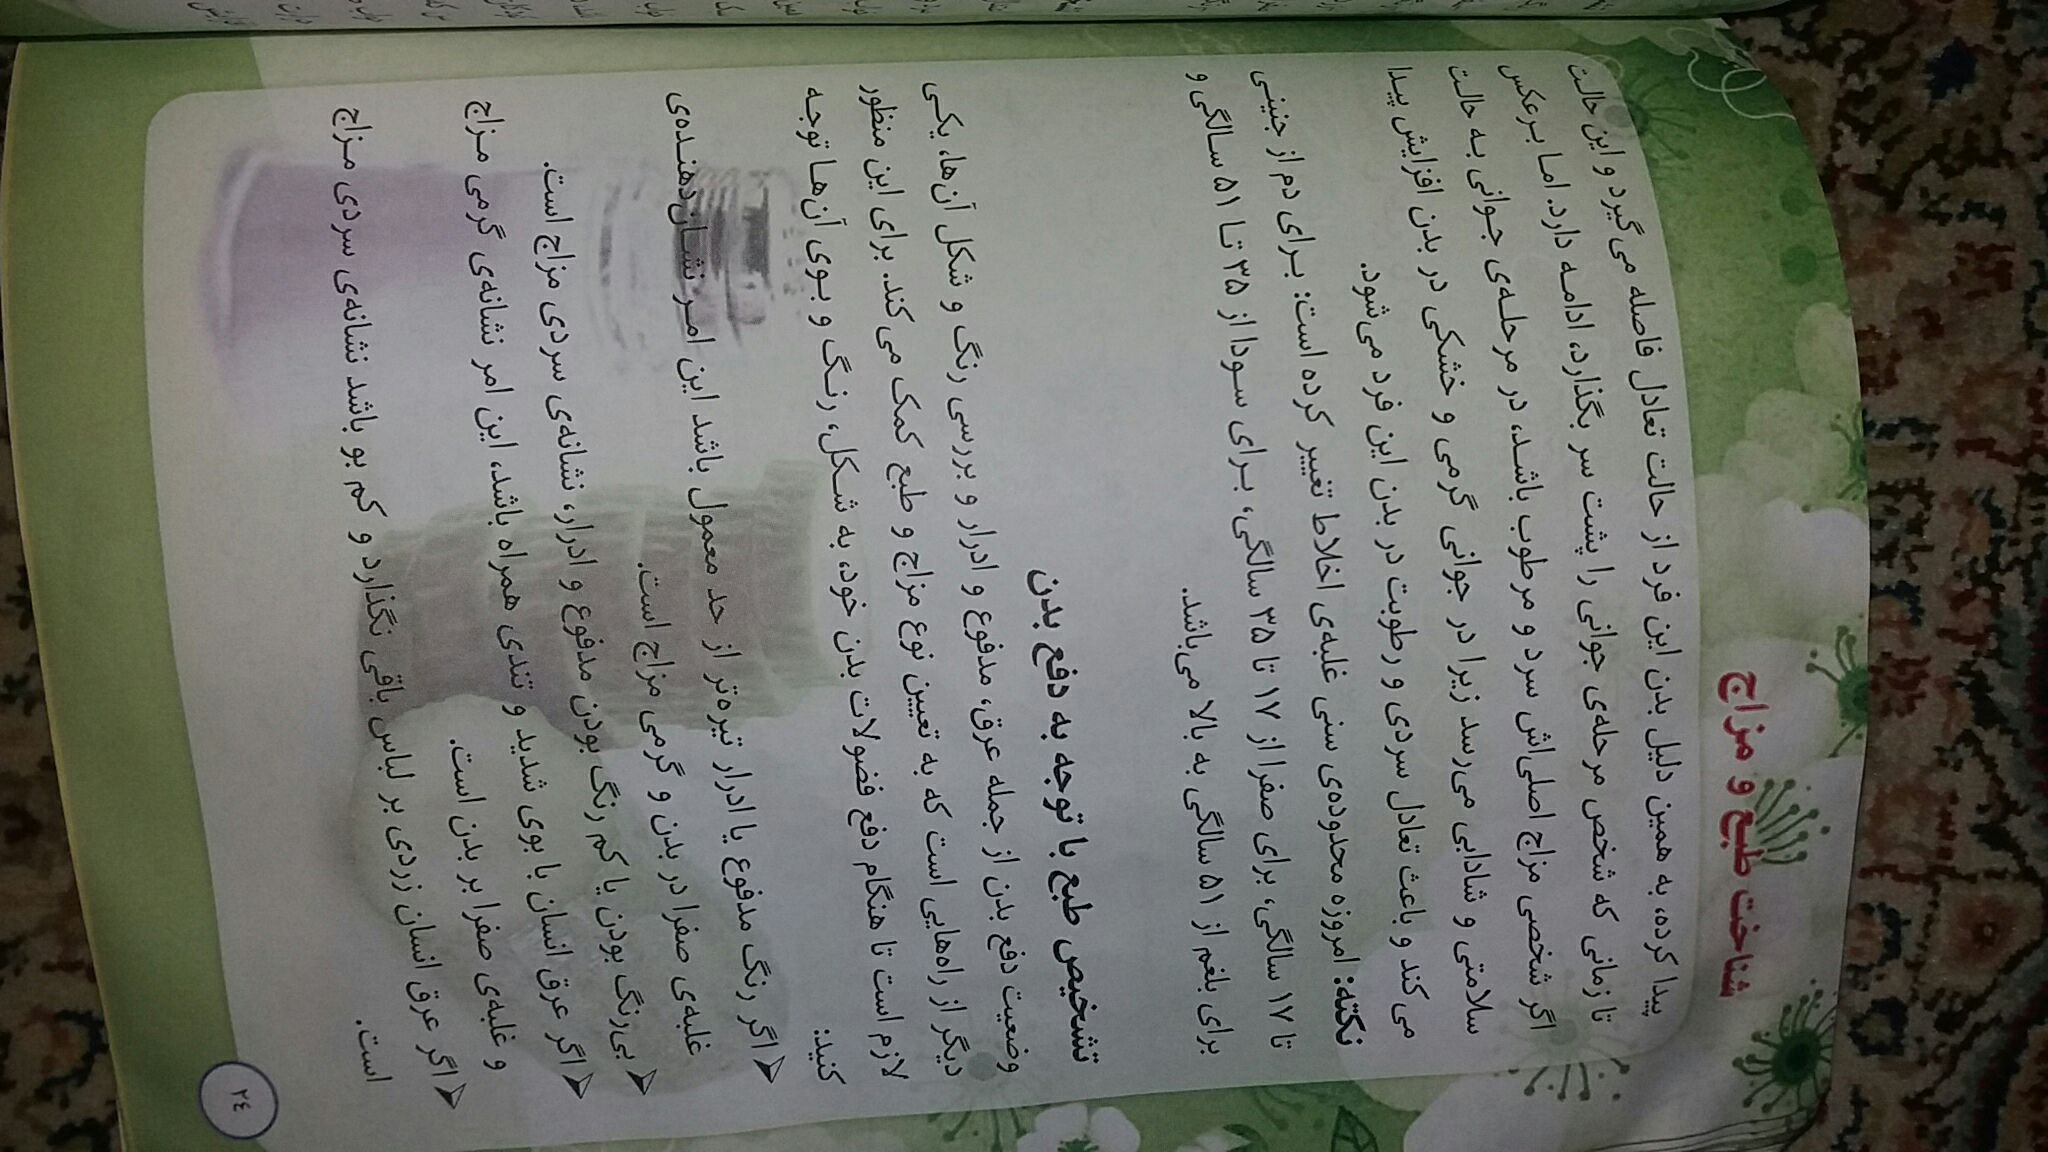 شناخت طبع و مزاج
پیدا کرده، به همین دلیل بدن این فرد از حالت تعادل فاصله می‌گیرد و این حالت
تا زمانی که شخص مرحله‌ی جوانی را پشت سر بگذارد، ادامه دارد. اما برعکس
اگر شخصی مزاج اصلی‌اش سرد و مرطوب باشد، در مرحله‌ی جوانی به حالت
سلامتی و شادابی می‌رسد زیرا در جوانی گرمی و خشکی در بدن افزایش پیدا
می‌کند و باعث تعادل سردی و رطوبت در بدن این فرد می‌شود.
نکته: امروزه محدوده‌ی سنی غلبه‌ی اخلاط تغییر کرده است: برای دم از جنینی
تا ۱۷ سالگی، برای صفرا از ۱۷ تا ۳۵ سالگی، برای سودا از ۳۵ تا ۵۱ سالگی و
برای بلغم از ۵۱ سالگی به بالا می‌باشد.
تشخیص طبع با توجه به دفع بدن
وضعیت دفع بدن از جمله عرق، مدفوع و ادرار و بررسی رنگ و شکل آن‌ها، یکی
دیگر از راه‌هایی است که به تعیین نوع مزاج و طبع کمک می‌کند. برای این منظور
لازم است تا هنگام دفع فضولات بدن خود، به شکل، رنگ و بوی آن‌ها توجه
کنید:
➤ اگر رنگ مدفوع یا ادرار تیره‌تر از حد معمول باشد این امر نشان‌دهنده‌ی
غلبه‌ی صفرا در بدن و گرمی مزاج است.
➤ بی‌رنگ بودن یا کم رنگ بودن مدفوع و ادرار، نشانه‌ی سردی مزاج است.
➤ اگر عرق انسان با بوی شدید و تندی همراه باشد، این امر نشانه‌ی گرمی مزاج
و غلبه‌ی صفرا بر بدن است.
➤ اگر عرق انسان زردی بر لباس باقی نگذارد و کم بو باشد نشانه‌ی سردی مزاج
است.
۲۴